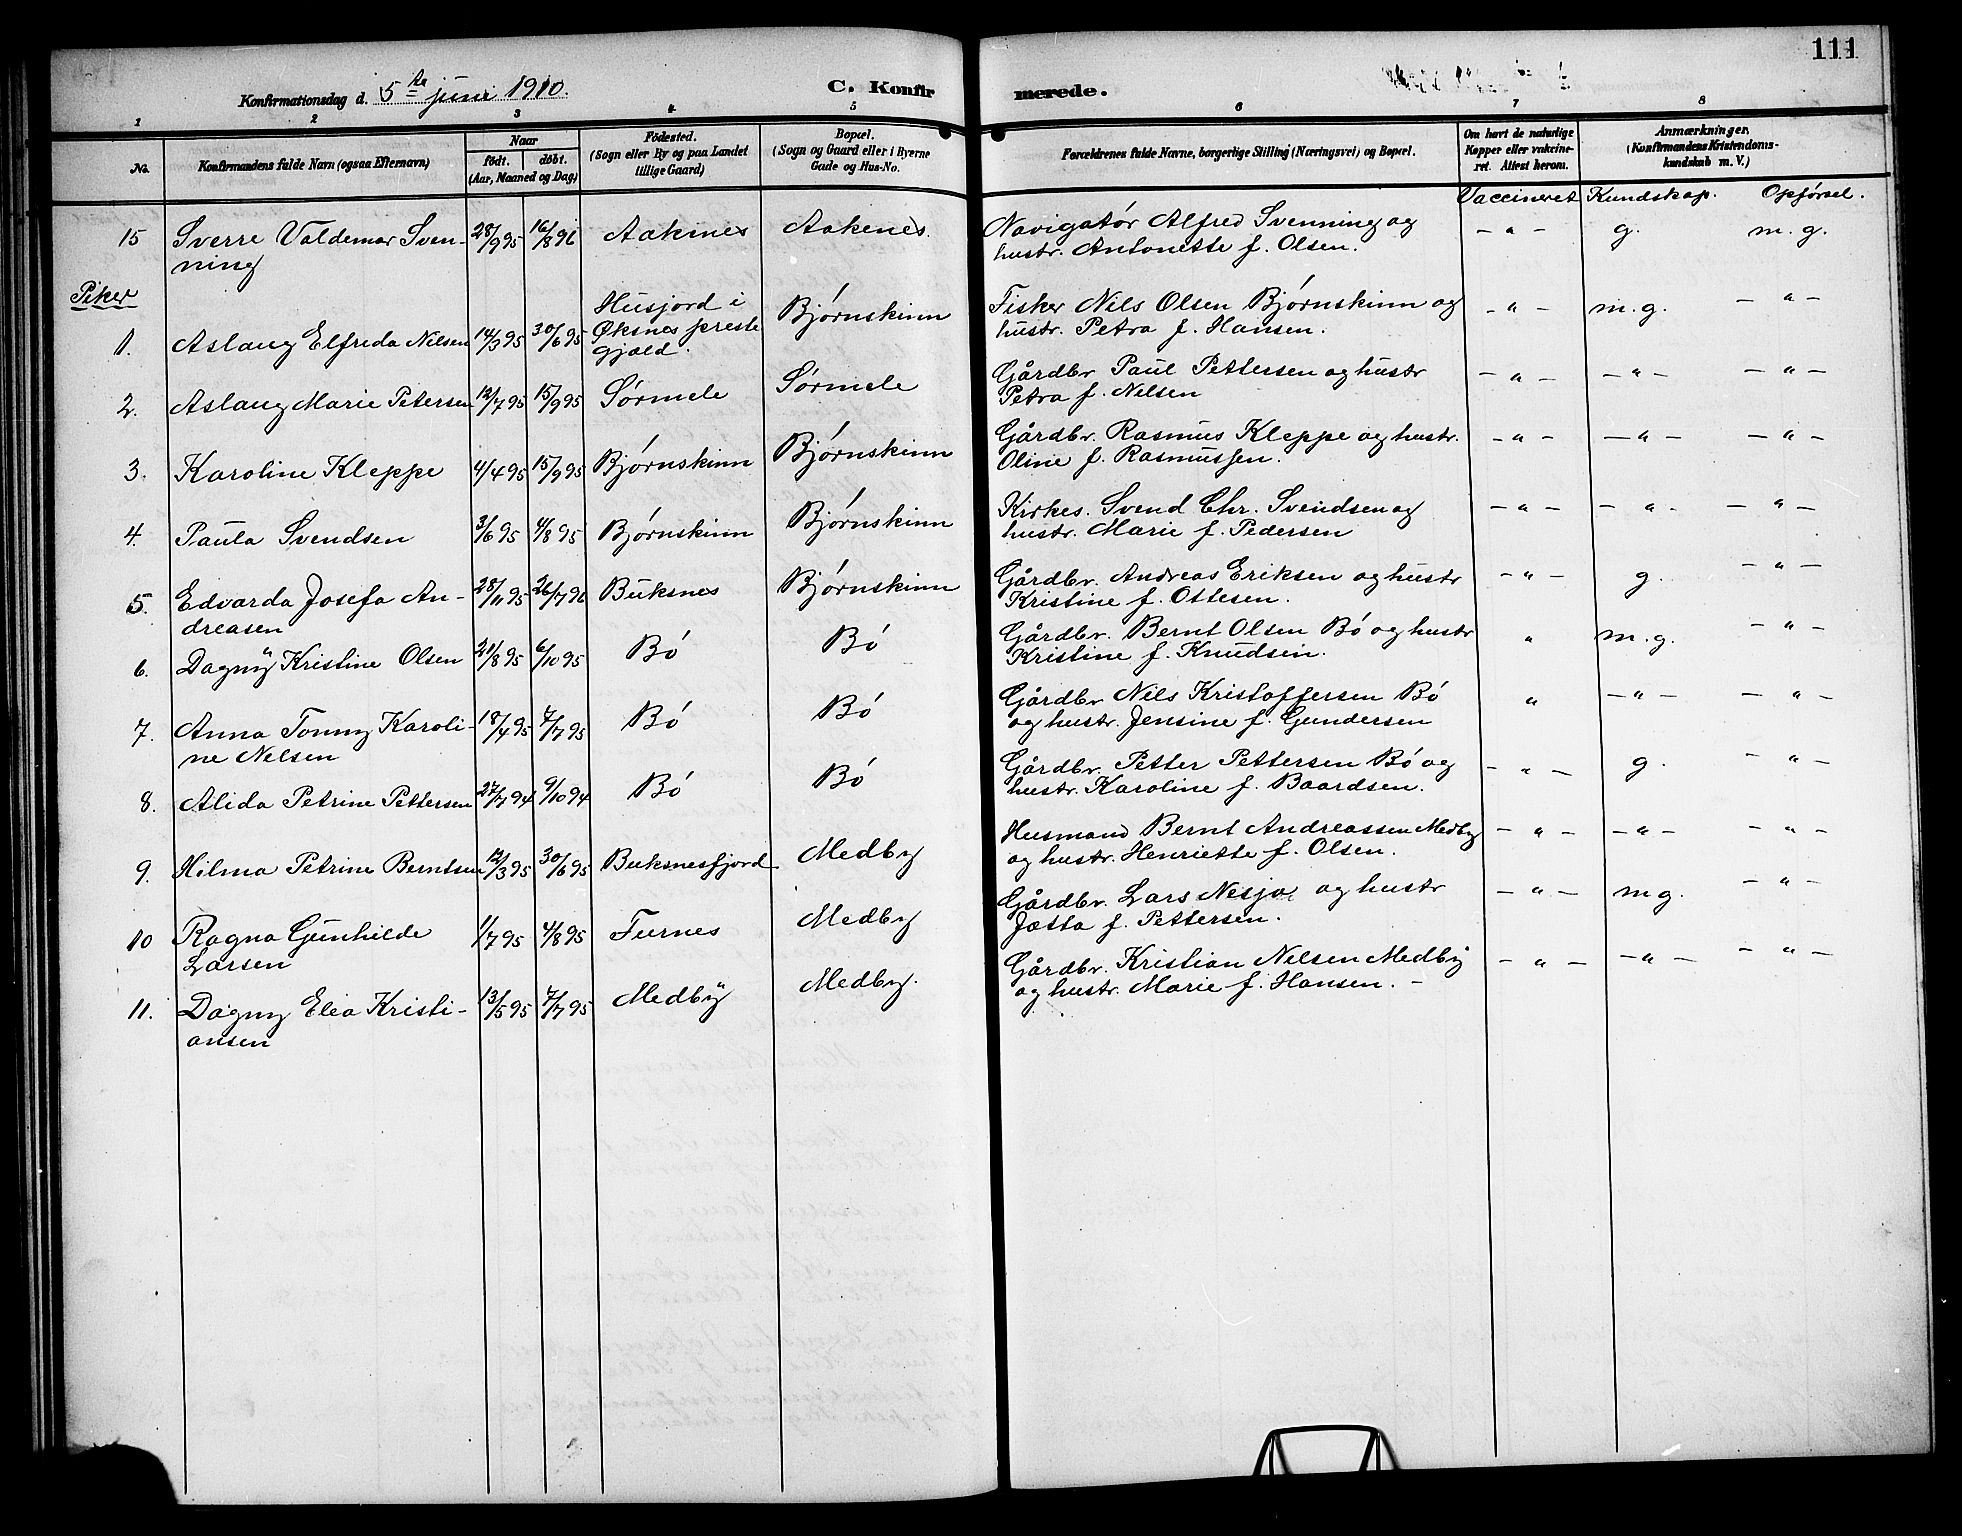 111
Konfirmationsdag d. 5te juni 1910.
C. Konfirmerede.
1 2 3 4 5 6 7 8
No.
Konfirmandens fulde Navn (ogsaa Efternavn)
Naar
født. døbt.
(Aar, Maaned og Dag)
Fødested.
(Sogn eller By og paa Landet
tillige Gaard)
Bopæl.
(Sogn og Gaard eller i Byerne
Gade og Hus-No.
Forældrenes fulde Navne, borgerlige Stilling (Næringsvei) og Bopæl.
Om havt de naturlige
Kopper eller vakcine-
ret. Attest herom.
Anmærkninger.
(Konfirmandens Kristendoms-
kundskab m. V.)
Vaccineret Kundskap. Opførsel.
15 Sverre Valdemar Sven- 28/9 95 16/8 96 Aakenes Aakenes. Navigatør Alfred Svenning og - " - g. m. g.
ning hustr. Antonette f. Olsen.
Piker
1. Aslaug Elfreda Nilsen 14/3 95 30/6 95 Husjord i Bjørnskinn Fisker Nils Olsen Bjørnskinn og - " - m. g. - " -
Øksnes preste hustr. Petra f. Hansen.
gjæld.
2. Aslaug Marie Petersen 12/7 95 15/9 95 Sørmele Sørmele Gårdbr Paul Pettersen og hustr - " - - " - - " -
Petra f. Nelsen
3. Karoline Kleppe 4/4 95 15/9 95 Bjørnskinn Bjørnskinn Gårdbr. Rasmus Kleppe og hustr. - " - - " - - " -
Oline f. Rasmussen.
4. Paula Svendsen 3/6 95 4/8 95 Bjørnskinn Bjørnskinn Kirkes. Svend Chr. Svendsen og - " - - " - - " -
hustr. Marie f. Pedersen
5. Edvarda Josefa An- 28/11 95 26/7 96 Buksnes Bjørnskinn Gårdbr. Andreas Eriksen og hustr - " - g. - " -
dreasen Kristine f. Ottesen.
6. Dagny Kristine Olsen 21/8 95 6/10 95 Bø Bø Gårdbr. Bernt Olsen Bø og hustr " m. g. - " -
Kristine f. Knudsen.
7. Anna Tonny Karoli- 18/4 95 7/7 95 Bø Bø Gårdbr Nils Kristoffersen Bø " - " - - " -
ne Nelsen og hustr. Jensine f. Gundersen
8. Alida Petrine Pettersen 27/7 94 9/10 94 Bø Bø Gårdbr. Petter Pettersen Bø og - " - g. - " -
hustr. Karoline f. Baardsen.
9. Hilma Petrine Berntsen 12/3 95 30/6 95 Buksnesfjord Medby Husmand Bernt Andreassen Medby - " - - " - - " -
og hustr. Henriette f. Olsen.
10 Ragna Gunhilde 1/7 95 4/8 95 Furnes Medby Gårdbr. Lars Nesje og hustr - " - m g. - " -
Larsen Jætta f. Pettersen.
11. Dagny Elea Kristi- 13/5 95 7/7 95 Medby Medby. Gårdbr. Kristian Nelsen Medby - " - - " - - " -
ansen og hustr. Marie f. Hansen. -